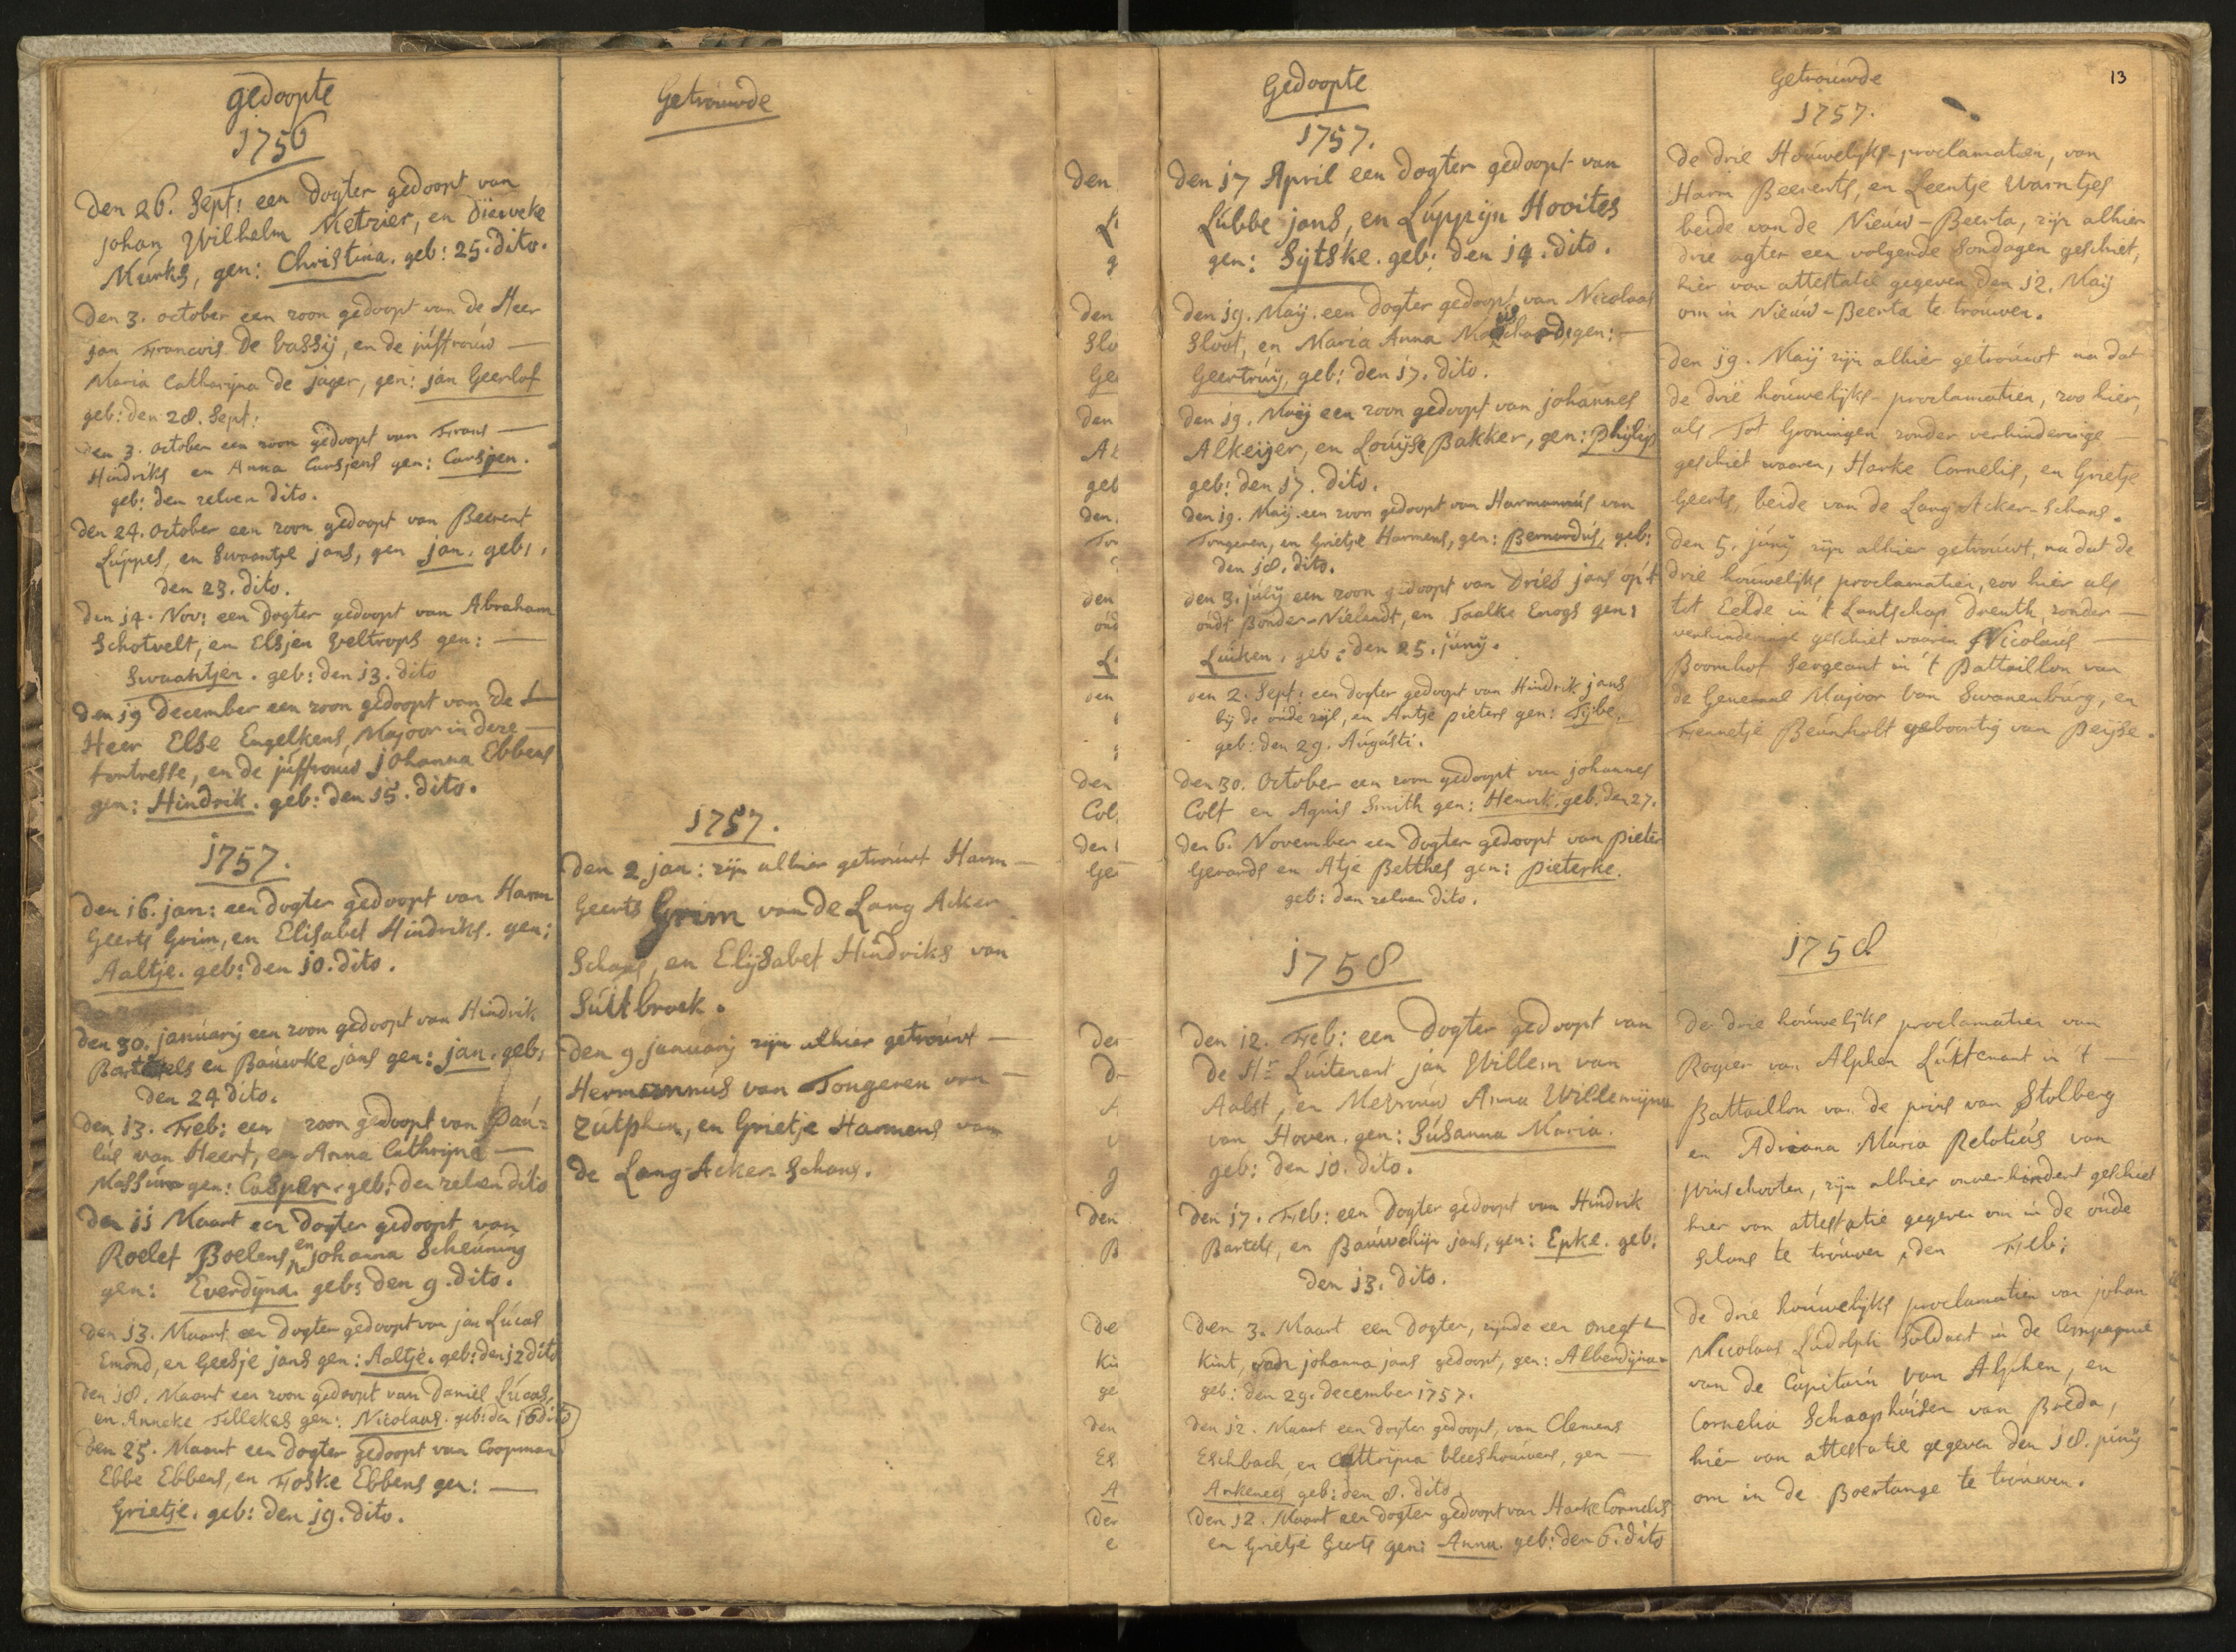 gedoopte
1756
Den 26. Sept: een Dogter gedoopt van
Johan Wilhelm Metzier, en Dieuweke
Murks, gen: Christina. geb: 25. dito.
Den 3. october een zoon gedoopt van de Heer
Jan Francois De Bassij, en de juffrouw —
Maria Catharijna de Jager, gen: Jan Geerlof
geb: den 28. Sept:
Den 3. October een zoon gedoopt van Frans —
Hindriks en Anna Carsjens gen: Carsjen.
geb: den zelven dito.
Den 24. October een zoon gedoopt van Beerent
Luppes, en Swaantje jans, gen jan. geb:
den 23. dito.
Den 14. Nov: een Dogter gedoopt van Abraham
Schotvelt, en Elsjen Veltrops gen: —
Swaantjen. geb: den 13. dito
Den 19 December een zoon gedoopt van De
Heer Else Engelkens, Majoor in deze —
fortresse, en de juffrouw Johanna Ebbens
gen: Hindrik. geb: den 15. dito.
1757.
Den 16. jan: een Dogter gedoopt van Harm
Geerts Grim, en Elisabet Hindriks. gen:
Aaltje. geb: den 10. dito.
Den 30. januarij een zoon gedoopt van Hindrik
Bartels en Bauwke jans gen: jan. geb:
den 24 dito.
Den 13. Feb: een zoon gedoopt van Pau=
lus van Heert, en Anna Cathrijna —
gen: Casper. geb: den zelven dito
Den 11 Maart een Dogter gedoopt van
Roelef Boelens, en Johanna Scheuning
gen: Everdijna. geb: den 9. dito.
Den 13. Maart een Dogter gedoopt van jan Lucas
Emond, en Geesje jans gen: Aaltje. geb: den 12 dito
Den 18. Maart een zoon gedoopt van Daniel Lucas,
en Anneke Tellekes gen: Nicolaas. geb: den 16 dito
Den 25. Maart een Dogter gedoopt van Coopman
Ebbe Ebbens, en Foske Ebbens gen: —
Grietje. geb: den 19. dito.
Getrouwde
1757.
Den 2 jan: zijn alhier getrouwt Harm —
Geerts Grim van de Lang Acker
Schans, en Elijsabet Hindriks van
Suitbroek.
Den 9 januarij zijn alhier getrouwt —
Hermannus van Tongeren van —
Zutphen, en Grietje Harmens van
de Lang-Acker-Schans.
Gedoopte
1757.
Den 17 April een Dogter gedoopt van
Lubbe jans, en Luppijn Hooites
gen: Sijtske. geb: den 14. dito.
Den 19. Maij. een Dogter gedoopt van Nicolaas
Sloot, en Maria Anna gen: —
Geertruij, geb: den 17. dito.
Den 19. Maij een zoon gedoopt van Johannes
Alkeijer, en Louijse Bakker, gen: Philip
geb: den 17. dito.
Den 19. Maij een zoon gedoopt van Harmannus van
Tongeren, en Grietje Harmens, gen: Bernardus, geb:
den 18. dito.
Den 3. julij een zoon gedoopt van Dries jans op 't
oudt Bonder-Nielandt, en Taalke Enogs gen:
Luiken, geb: den 25. junij.
Den 2. Sept: een dogter gedoopt van Hindrik jans
bij de oude zijl, en Antje pieters gen: Tijbe,
geb: den 29. Augusti.
Den 30. October een zoon gedoopt van Johannes
Colf en Agnis Smith gen: Henrik, geb. den 27.
Den 6. November een Dogter gedoopt van Pieter
Gerards en Atje Betthes gen: Pieterke.
geb: den zelven dito.
1758
Den 12. Feb: een Dogter gedoopt van
De Hr Luitenant jan Willem van
Aalst, en Mevrouw Anna Willemijna
van Hoven. gen: Susanna Maria.
geb: den 10. dito.
Den 17. Feb: een Dogter gedoopt van Hindrik
Bartels, en Bauwchijn jans, gen: Epke. geb:
den 13. dito.
Den 3. Maart een Dogter, zijnde een onegt
Kint, van Johanna jans gedoopt, gen: Alberdijna
geb: den 29. december 1757.
Den 12. Maart een dogter gedoopt, van Clemens
Eschbach, en Cattrijna vleeshouwers, gen —
geb: den 8. dito.
Den 12. Maart een dogter gedoopt van Harke Cornelis
en Grietje Geerts gen: Anna. geb: den 6. dito
Getrouwde
13
1757.
De drie Houwelijks-proclamatien, van
Harm Beerents, en Leentje Warntjes
beide van de Nieuw-Beerta, zijn alhier
drie agter een volgende Sondagen geschiet,
hier van attestatie gegeven den 12. Maij
om in Nieuw-Beerta te trouwen.
Den 19. Maij zijn alhier getrouwt na dat
de drie houwelijks-proclamatien, zoo hier,
als Tot Groningen zonder verhinderinge —
geschiet waaren, Harke Cornelis, en Grietje
Geerts, beide van de Lang Acker-Schans.
Den 5. junij zijn alhier getrouwt, na dat de
drie houwelijks proclamatien, zoo hier als
tot Eelde in 't Lantschap Drenth, zonder —
verhinderinge geschiet waaren Nicolaus —
Boomhof Sergeant in 't Battaillon van
de Generaal Majoor van Swanenburg, en
Fennetje Beunholt geboortig van Peijse.
1758.
De drie houwelijks proclamatien van
Rogier van Alphen Luitenant in 't —
Battaillon van de prins van Stolberg
en Adriana Maria Relotius van
Winschooten, zijn alhier onverhindert geschiet
hier van attestatie gegeven om in de oude
schans te trouwen, den Feb:
De drie houwelijks proclamatien van johan
Nicolaas Ludolph Soldaat in de Compagnie
van de Capitain van Alphen, en
Cornelia Schaaphuisen van Breda,
hier van attestatie gegeven den 18. junij
om in de Boertange te trouwen.